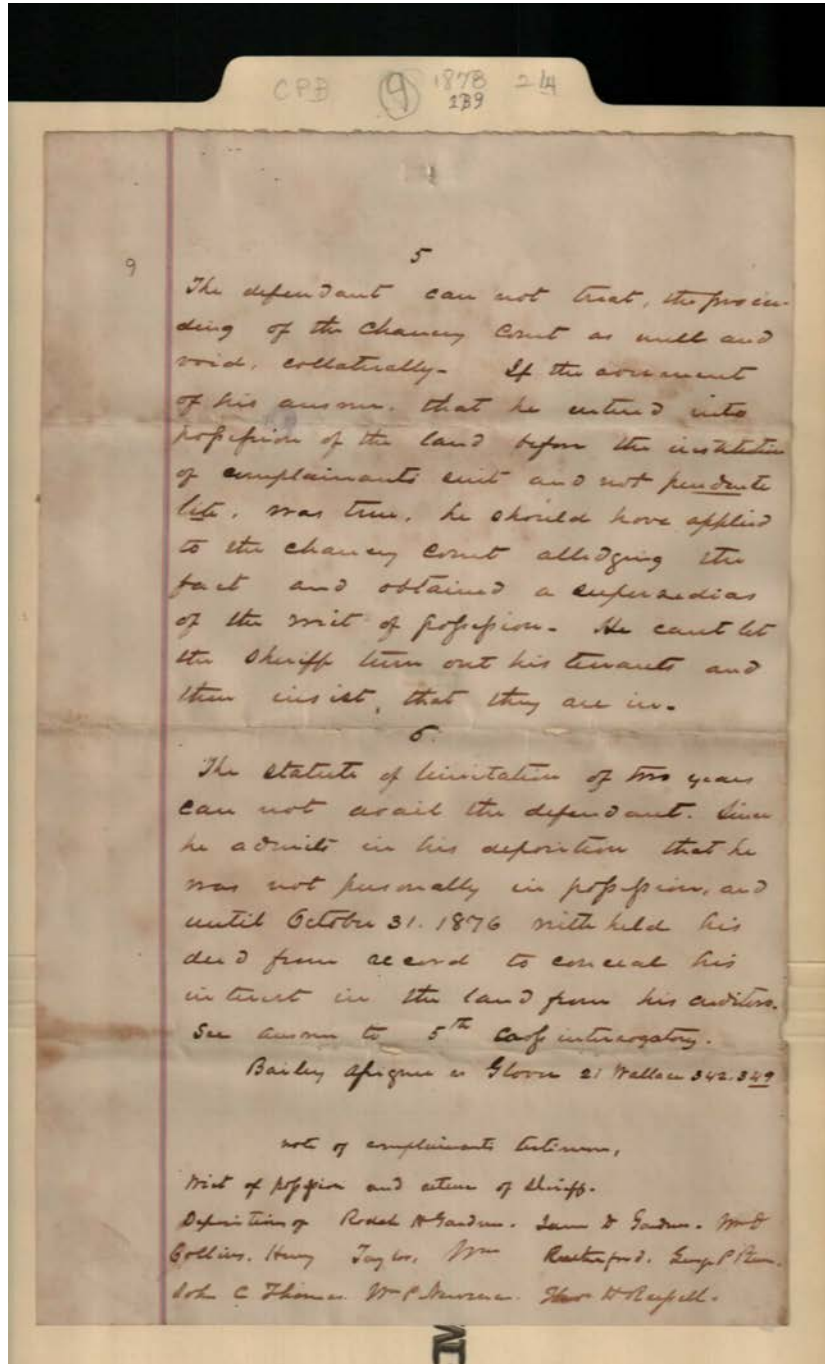 CPB 9 1878 214
239
5
9
The defendant can not treat, the procee-
ding of the Chancey Court as null and
void, collaterally - If the averment
of his answer, that he entered into
possession of the land before the institution
of complainants suit and not pendente
lite, was true, he should have applied
to the chancey court alledging the
fact and obtained a supersedias
of the writ of possession - He cant let
the Sheriff turn out his tenants and
then insist, that they are in -
6
The statute of limitation of two years
can not avail the defendant. Since
he admits in his deposition that he
was not personally in possession, and
until October 31. 1876 with held his
deed from record to conceal his
interest in the land from his creditors.
See answer to 5th Cross interrogatory.
Bailey Assignee vs Glover 21 Wallace 342.349
note of complainants testimony,
Writ of possession and return of Sheriff.
Depositions of H Gardner. James D Gardner. Wm D
Collins. Henry Taylor, Wm Rutherford. George P
John C Thomas. W P Thos H Russell.